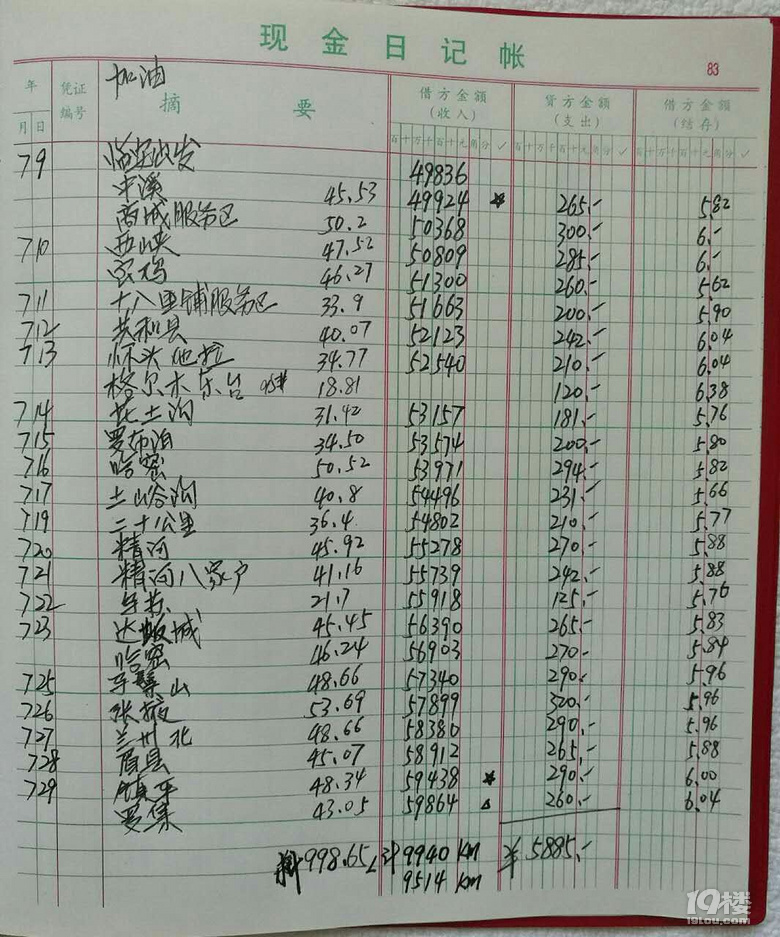 现金日记帐
83
年 凭证编号 摘要 借方金额(收入) 贷方金额(支出) 借方金额(结存)
月 日 百十万千百十元角分✓ 百十万千百十元角分✓ 百十万千百十元角分✓
加油
7 9 临安出发 49836
屯溪 45.53 49924 ★ 265.- 5.82
商城服务区 50.2 50368 300.- 6.-
7 10 西峡 47.52 50809 285.- 6.-
宝鸡 46.27 51300 260.- 5.62
7 11 十八里铺服务区 33.9 51663 200.- 5.90
7 12 共和县 40.07 52123 242.- 6.04
7 13 怀头他拉 34.77 52540 210.- 6.04
格尔木东台 95# 18.81 120.- 6.38
7 14 花土沟 31.42 53157 181.- 5.76
7 15 罗布泊 34.50 53574 200.- 5.80
7 16 哈密 50.52 53971 294.- 5.82
7 17 土峪沟 40.8 54496 231.- 5.66
7 19 二十公里 36.4 54802 210.- 5.77
7 20 精河 45.92 55278 270.- 5.88
7 21 精河八家户 41.16 55739 242.- 5.88
7 22 乌苏 21.7 55918 125.- 5.76
7 23 达坂城 45.45 56390 265.- 5.83
哈密 46.24 56903 270.- 5.84
7 25 马鬃山 48.66 57340 290.- 5.96
7 26 张掖 53.69 57899 320.- 5.96
7 27 兰州北 48.66 58380 290.- 5.96
7 28 眉县 45.07 58912 265.- 5.88
7 29 镇平 48.34 59438 ★ 290.- 6.00
罗集 43.05 59864 △ 260.- 6.04
998.65L 计 9940 km ¥5885.-
9514 km
19楼
19lou.com